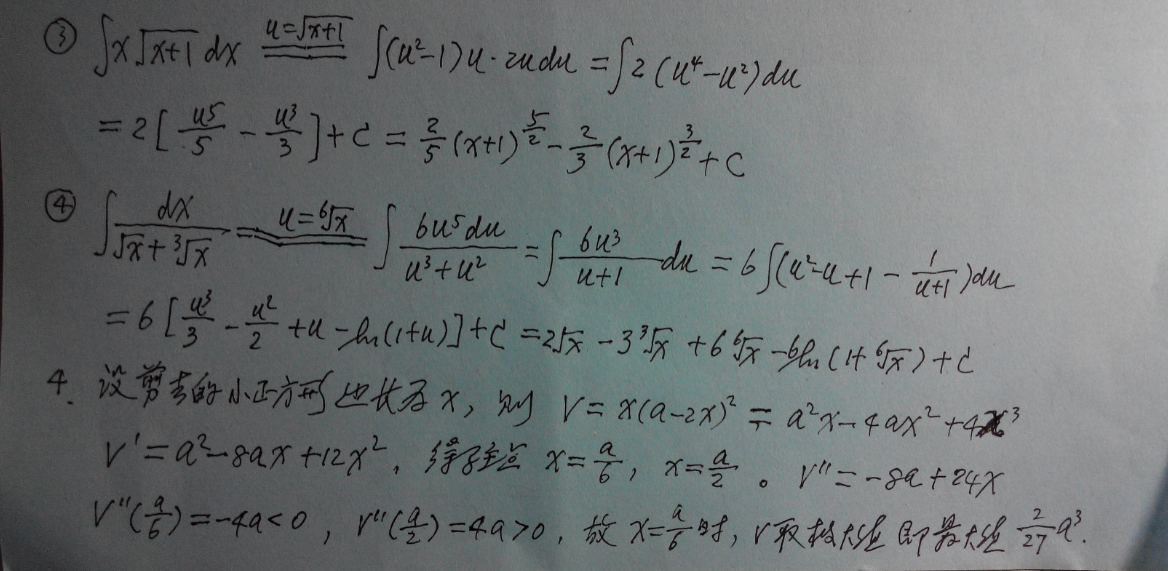 ③ ∫x√(x+1) dx ==(u=√(x+1))== ∫(u²-1)u·2udu = ∫2(u⁴-u²)du
= 2[u⁵/5 - u³/3] + C = 2/5 (x+1)^(5/2) - 2/3 (x+1)^(3/2) + C
④ ∫dx/(√x + ³√x) ==(u=⁶√x)== ∫6u⁵du/(u³+u²) = ∫6u³/(u+1) du = 6∫(u²-u+1 - 1/(u+1))du
= 6[u³/3 - u²/2 + u - ln(1+u)] + C = 2√x - 3³√x + 6⁶√x - 6ln(1+⁶√x) + C
4. 设剪去的小正方形边长为x, 则 V = x(a-2x)² = a²x - 4ax² + 4x³
V' = a² - 8ax + 12x², 得驻点 x = a/6, x = a/2。V'' = -8a + 24x
V''(a/6) = -4a < 0, V''(a/2) = 4a > 0, 故 x = a/6 时, V取极大值即最大值 2/27 a³.